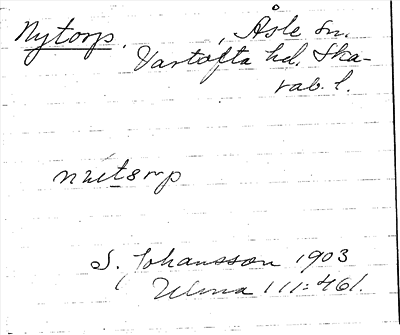 Nytorp. , Åsle sn.
Vartofta hd. Ska-
rab. l.
S. Johansson 1903
Ulma 111:461.